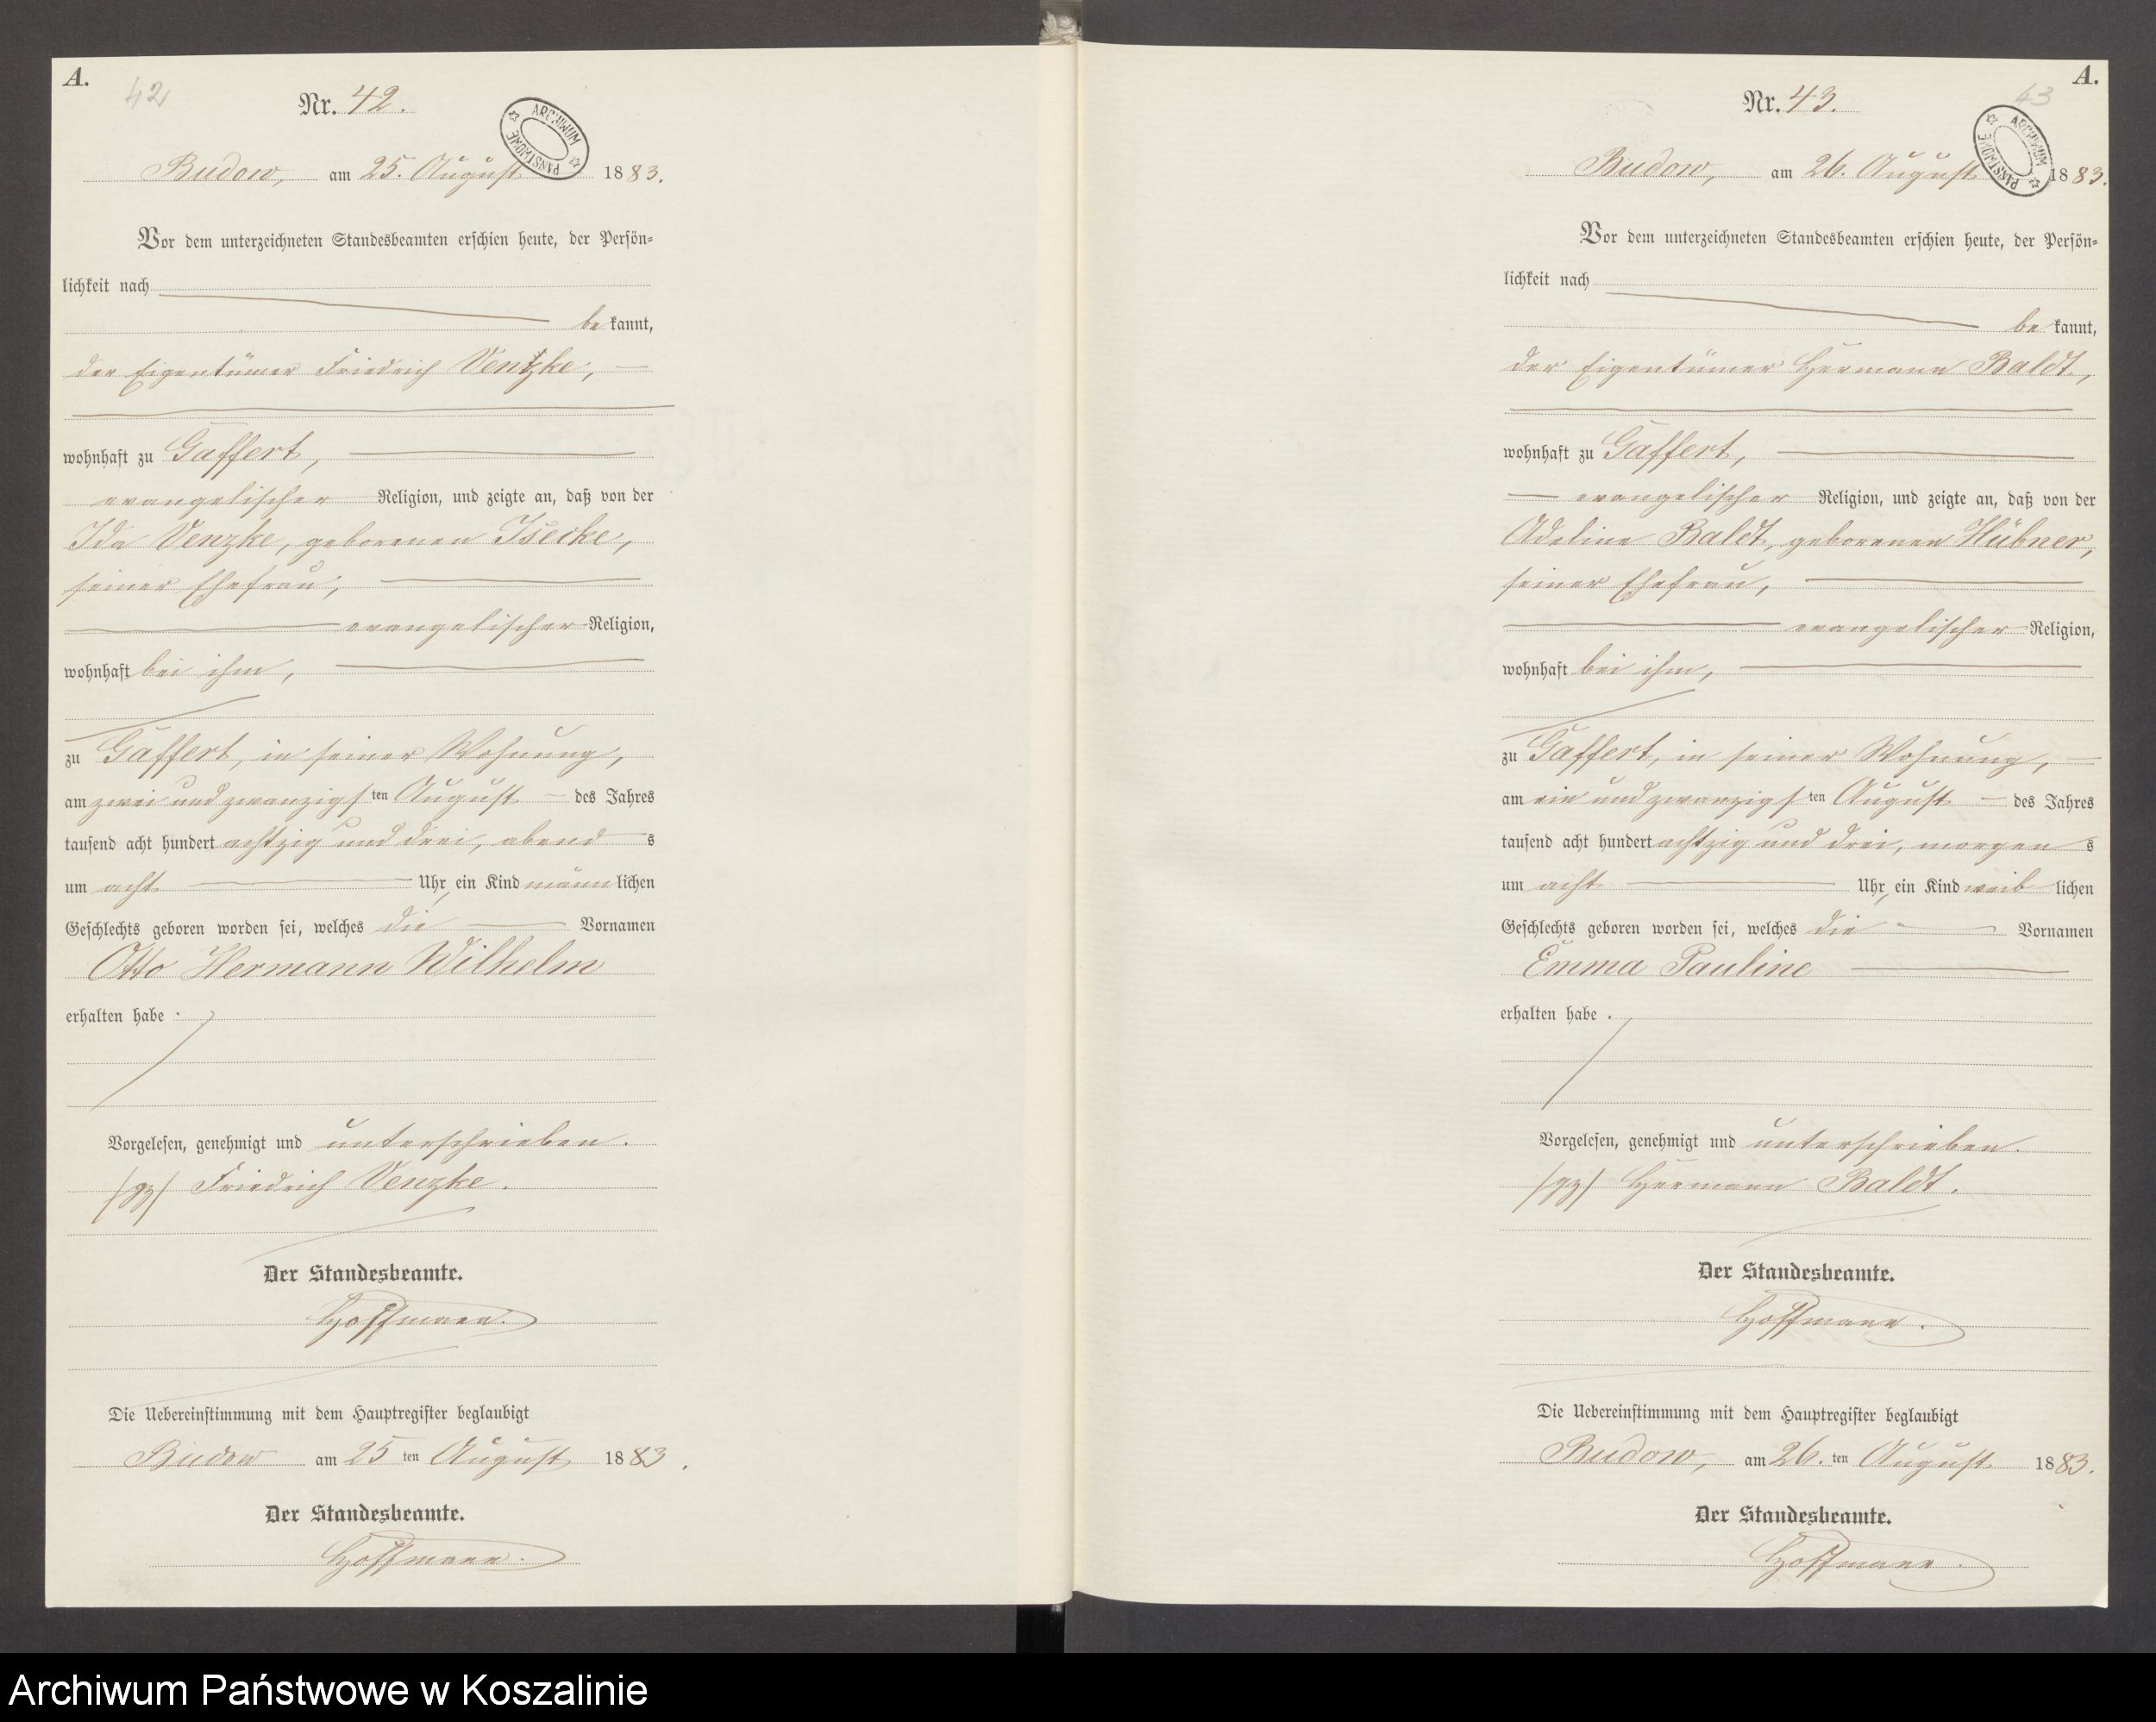 A.
42
Nr. 42.
ARCHIWUM PAŃSTWOWE
Budow, am 25. August 1883.
Vor dem unterzeichneten Standesbeamten erschien heute, der Persön=
lichkeit nach
be kannt,
der Eigentümer Friedrich Ventzke,
wohnhaft zu Gaffert,
evangelischer Religion, und zeigte an, daß von der
Ida Venzke, geborenen Isecke,
seiner Ehefrau,
evangelischer Religion,
wohnhaft bei ihm,
zu Gaffert, in seiner Wohnung,
am zwei und zwanzigsten August des Jahres
tausend acht hundert achtzig und drei, abends
um acht Uhr, ein Kind männlichen
Geschlechts geboren worden sei, welches die Vornamen
Otto Hermann Wilhelm
erhalten habe.
Vorgelesen, genehmigt und unterschrieben.
/gz/ Friedrich Venzke.
Der Standesbeamte.
Hoffmann.
Die Uebereinstimmung mit dem Hauptregister beglaubigt
Budow am 25 ten August 1883.
Der Standesbeamte.
Hoffmann.
A.
43
Nr. 43.
ARCHIWUM PAŃSTWOWE
Budow, am 26. August 1883.
Vor dem unterzeichneten Standesbeamten erschien heute, der Persön=
lichkeit nach
be kannt,
der Eigentümer Hermann Baldt,
wohnhaft zu Gaffert,
evangelischer Religion, und zeigte an, daß von der
Adeline Baldt, geborenen Hübner,
seiner Ehefrau,
evangelischer Religion,
wohnhaft bei ihm,
zu Gaffert, in seiner Wohnung,
am ein und zwanzigsten August des Jahres
tausend acht hundert achtzig und drei, morgens
um acht Uhr, ein Kind weiblichen
Geschlechts geboren worden sei, welches die Vornamen
Emma Pauline
erhalten habe.
Vorgelesen, genehmigt und unterschrieben.
/gz/ Hermann Baldt.
Der Standesbeamte.
Hoffmann.
Die Uebereinstimmung mit dem Hauptregister beglaubigt
Budow, am 26. ten August 1883.
Der Standesbeamte.
Hoffmann.
Archiwum Państwowe w Koszalinie